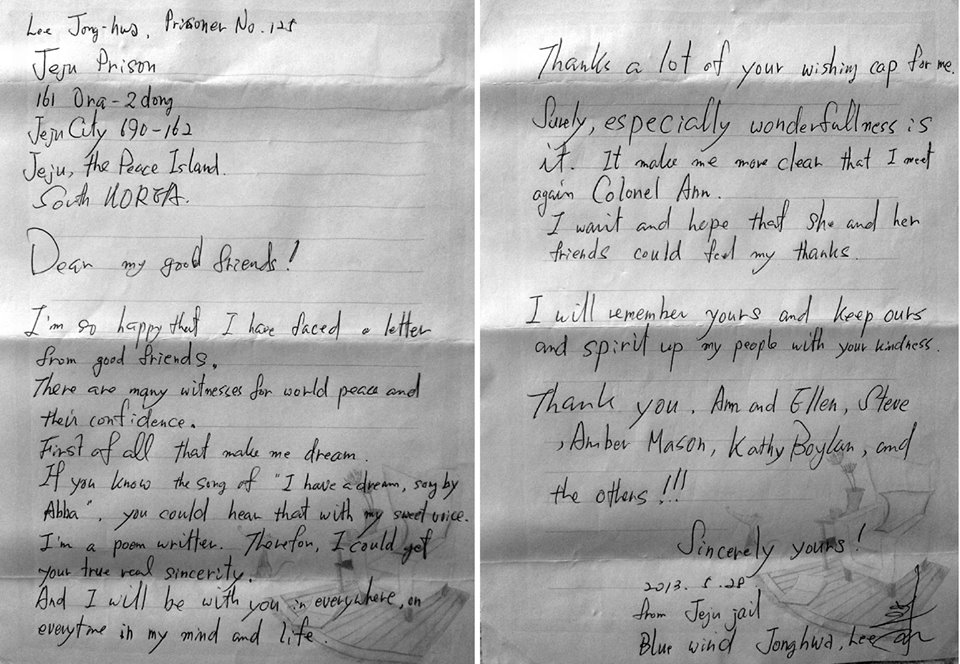 Lee Jong-hwa, Prisoner No. 128
Jeju Prison
161 Ora-2dong
Jeju City 690-162
Jeju, the Peace Island.
South KOREA.
Dear my good friends!
I'm so happy that I have faced a letter
from good friends.
There are many witnesses for world peace and
their confidence.
First of all that make me dream.
If you know the song of "I have a dream, song by
Abba", you could hear that with my sweet voice.
I'm a poem writter. Therefor, I could get
your true real sincerity.
And I will be with you in everywhere, on
everytme in my mind and life.
Thanks a lot of your wishing cap for me.
Surely, especially wonderfullness is
it. It make me more clear that I meet
again Colonel Ann.
I want and hope that she and her
friends could feel my thanks.
I will remember yours and keep ours
and spirit up my people with your kindness.
Thank you. Ann and Ellen, Steve
, Amber Mason, Kathy Boylan, and
the others!!!
Sincerely yours!
2013. 5. 28
from Jeju jail
Blue wind Jonghwa, Lee